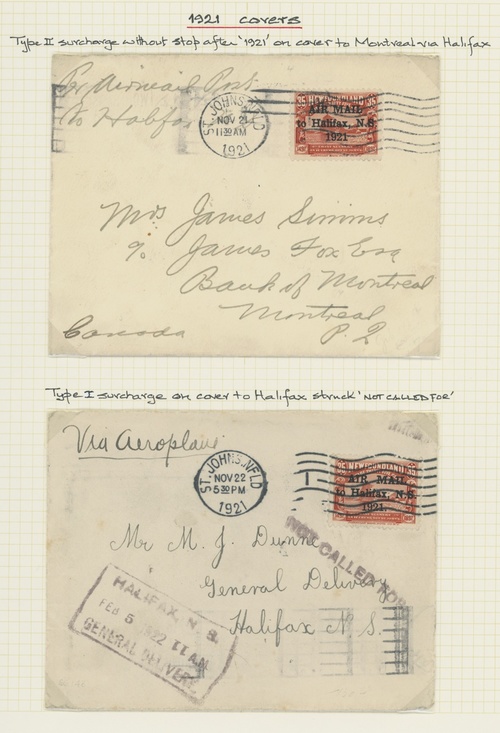 1921 covers
Type II surcharge without stop after '1921' on cover to Montreal via Halifax
Per Airmail Post
to Halifax
ST. JOHN'S. NFLD
NOV 21
11 30 AM
1921
35 NEWFOUNDLAND 35
AIR MAIL
to Halifax, N.S.
1921
Mrs James Simms
c/o James Fox Esq
Bank of Montreal
Montreal
P. Q
Canada
Type I surcharge on cover to Halifax struck 'NOT CALLED FOR'
Via Aeroplane
ST. JOHN'S. NFLD
NOV 22
5 30 PM
1921
35 NEWFOUNDLAND 35
AIR MAIL
to Halifax, N.S.
1921.
NOT CALLED FOR
Mr M. J. Dunne
General Delivery
Halifax N. S.
HALIFAX, N. S.
FEB 5 1922 11 AM
GENERAL DELIVERY